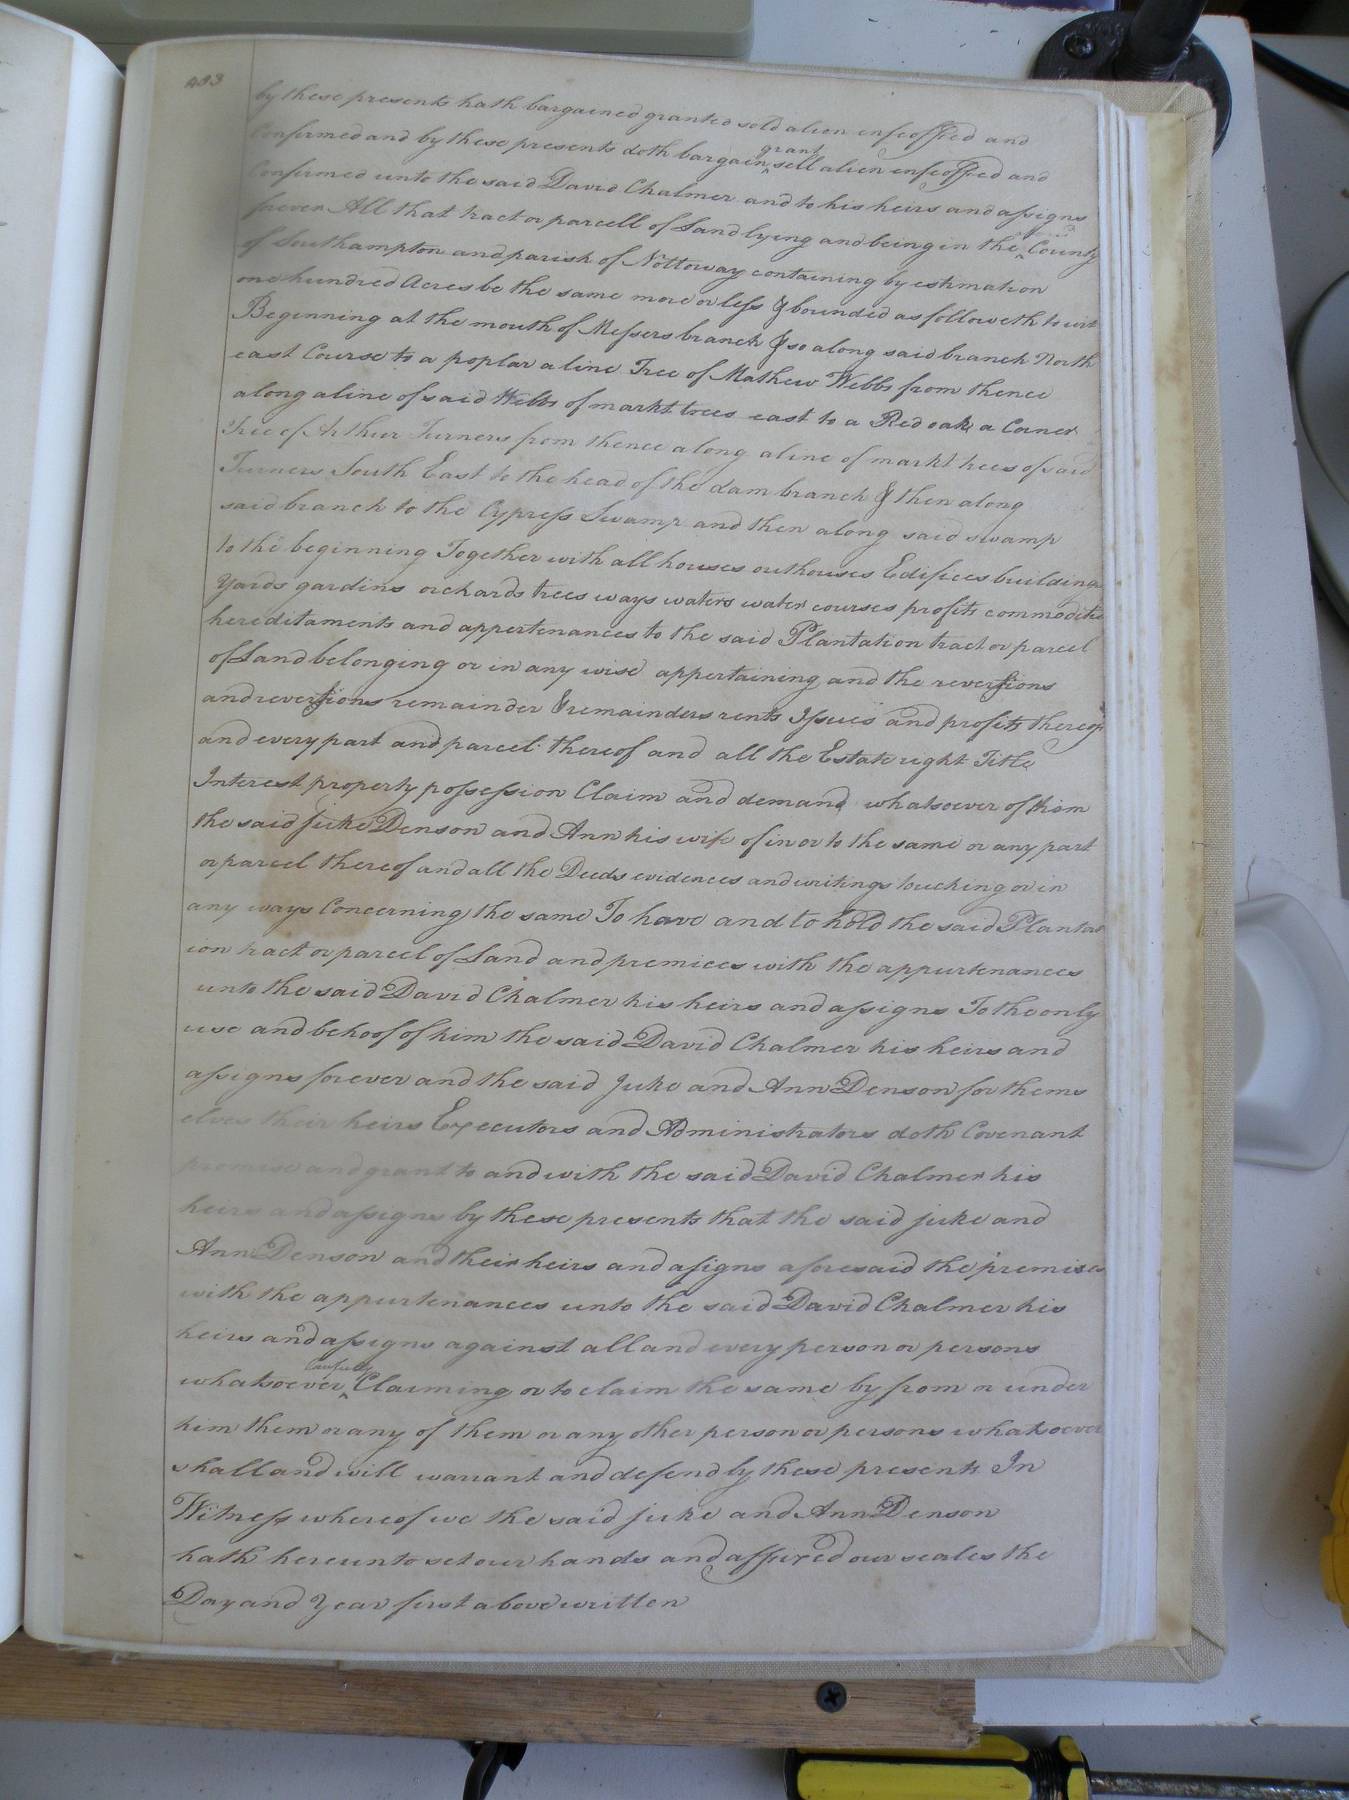 433
by these presents hath bargained granted sold alien enfeoffed and
Confirmed and by these presents doth bargain grant sell alien enfeoffed and
Confirmed unto the said David Chalmer and to his heirs and assigns
forever All that tract or parcell of Land lying and being in the County
of Southampton and parish of Nottoway containing by estimation
one hundred Acres be the same more or less & bounded as followeth to wit
Beginning at the mouth of Messers branch & so along said branch North
east Course to a poplar a line Tree of Mathew Webbs from thence
along a line of said Webbs of markt trees east to a Red oak a Corner
Tree of Arthur Turners from thence along a line of markt trees of said
Turners South East to the head of the dam branch & then along
said branch to the Cypress Swamp and then along said swamp
to the beginning Together with all houses outhouses Edifices buildings
Yards gardins orchards trees ways waters water courses profits commodities
hereditaments and appertenances to the said Plantation tract or parcel
of Land belonging or in any wise appertaining and the reversions
and reversions remainder & remainders rents Issues and profits thereof
and every part and parcel thereof and all the Estate right Title
Interest property possession Claim and demand whatsoever of him
the said Juke Denson and Ann his wife of in or to the same or any part
or parcel thereof and all the Deeds evidences and writings touching or in
any ways Concerning the same To have and to hold the said Plantat
ion tract or parcel of Land and premices with the appurtenances
unto the said David Chalmer his heirs and assigns To the only
use and behoof of him the said David Chalmer his heirs and
assigns forever and the said Juke and Ann Denson for thems
elves their heirs Executors and Administrators doth Covenant
promise and grant to and with the said David Chalmer his
heirs and assigns by these presents that the said juke and
Ann Denson and their heirs and asigns aforesaid the premises
with the appurtenances unto the said David Chalmer his
heirs and assigns against all and every person or persons
whatsoever Lawfully Claiming or to claim the same by from or under
him them or any of them or any other person or persons whatsoever
shall and will warrant and defend by these presents In
Witness whereof we the said juke and Ann Denson
hath hereunto set our hands and affixed our seales the
Day and Year first above written